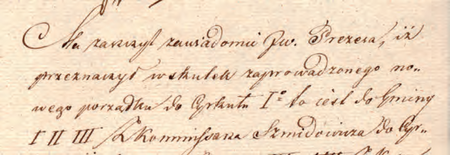 Ma zaszczyt zawiadomić Jw. Prezesa, iż
przeznaczył wskutek zaprowadzonego no-
wego porządku do Cyrkułu Iº to iest do Gminy
I II III Kommissarza Szmidowicza do Cyr-